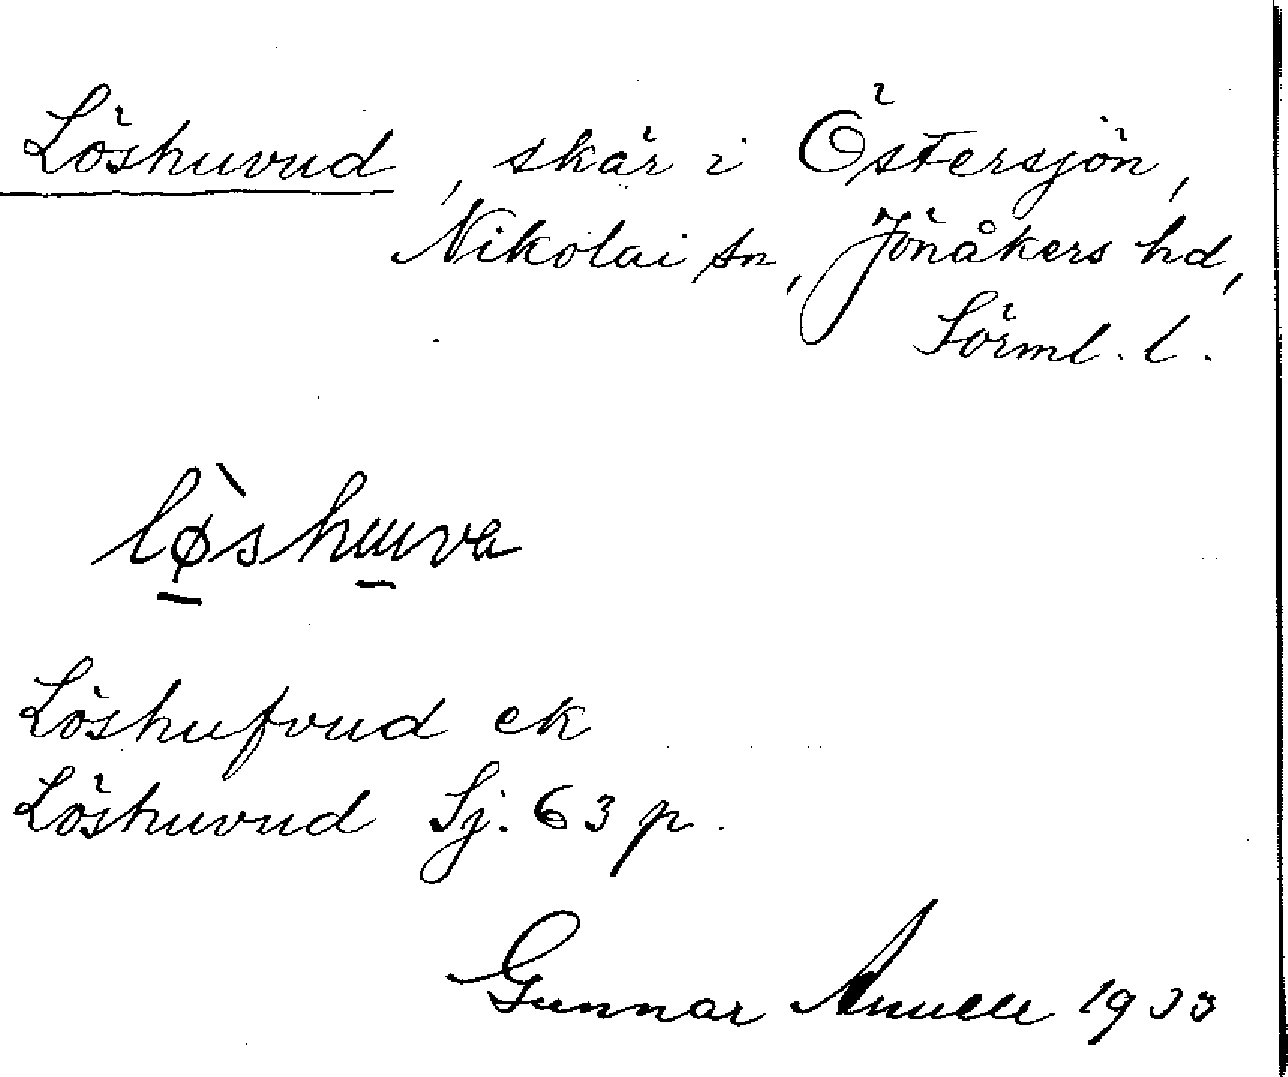 Löshuvud, skär i Östersjön,
Nikolai sn, Jönåkers hd,
Sörml. l.
lø̀shuva
Löshufvud ek
Löshuvud Sj. 63 p.
Gunnar 1933